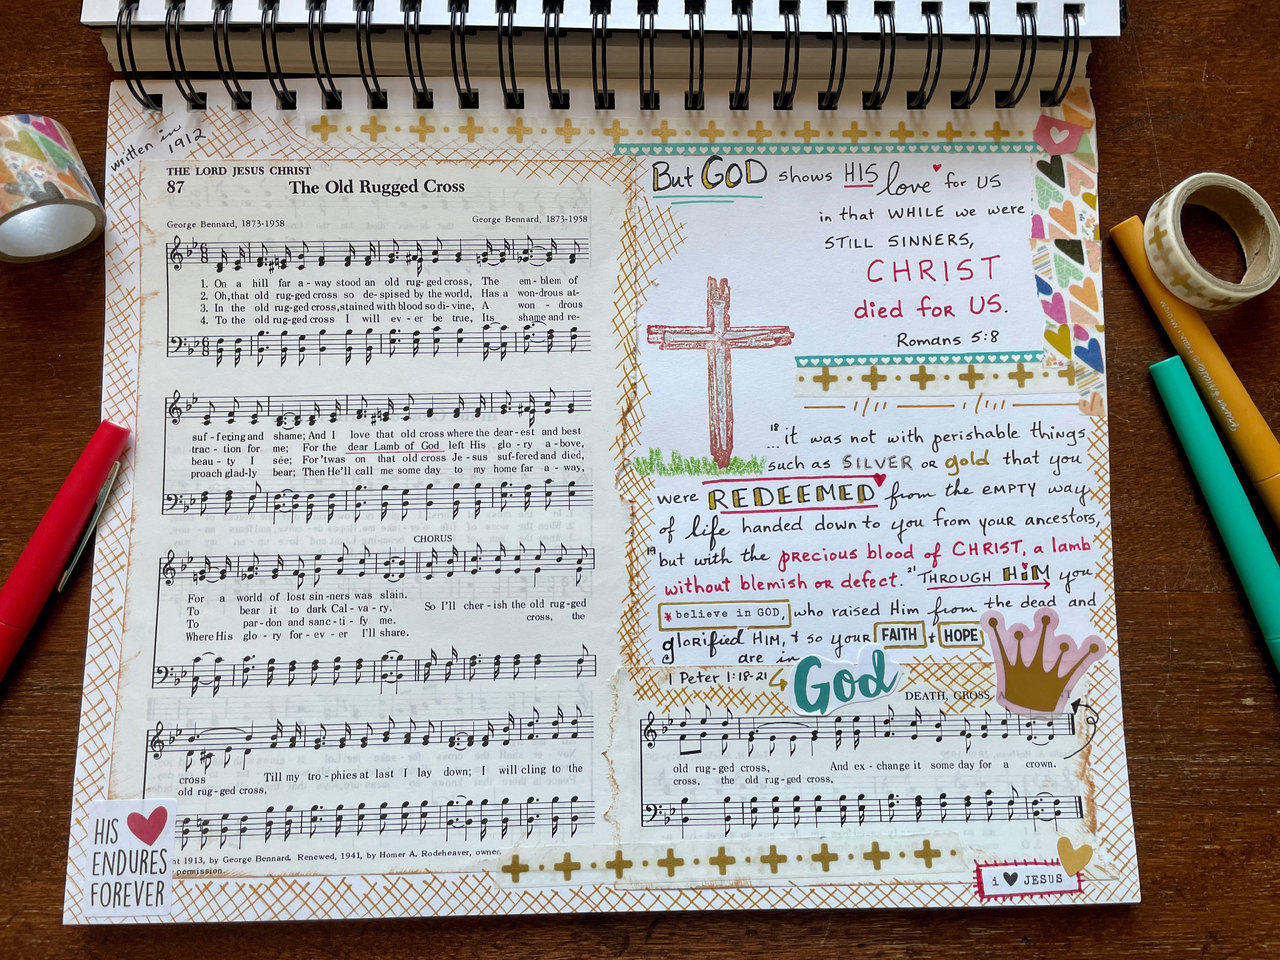 written in
1912
THE LORD JESUS CHRIST
87 The Old Rugged Cross
George Bennard, 1873-1958 George Bennard, 1873-1958
1. On a hill far a-way stood an old rug-ged cross, The em-blem of
2. Oh, that old rug-ged cross so de-spised by the world, Has a won-drous at-
3. In the old rug-ged cross, stained with blood so di-vine, A won-drous
4. To the old rug-ged cross I will ev-er be true, Its shame and re-
suf-fering and shame; And I love that old cross where the dear-est and best
trac-tion for me; For the dear Lamb of God left His glo-ry a-bove,
beau-ty I sée; For 'twas on that old cross Je-sus suf-fered and died,
proach glad-ly bear; Then He'll call me some day to my home far a-way,
CHORUS
For a world of lost sin-ners was slain.
To bear it to dark Cal-va-ry. So I'll cher-ish the old rug-ged
To par-don and sanc-ti-fy me. cross, the
Where His glo-ry for-ev-er I'll share.
cross Till my tro-phies at last I lay down; I will cling to the
old rug-ged cross,
1913, by George Bennard. Renewed, 1941, by Homer A. Rodeheaver, owner.
permission.
HIS
ENDURES
FOREVER
But GOD shows HIS love for US
in that WHILE we were
STILL SINNERS,
CHRIST
died for US.
Romans 5:8
18 ...it was not with perishable things
such as SILVER or gold that you
were REDEEMED from the EMPTY way
of life handed down to you from your ancestors,
19 but with the precious blood of CHRIST, a lamb
without blemish or defect. 21 THROUGH HiM you
* believe in GOD, who raised Him from the dead and
glorified HIM, + so your FAITH + HOPE
are in God
1 Peter 1:18-21
DEATH, CROSS,
old rug-ged cross, And ex-change it some day for a crown.
cross, the old rug-ged cross,
i JESUS